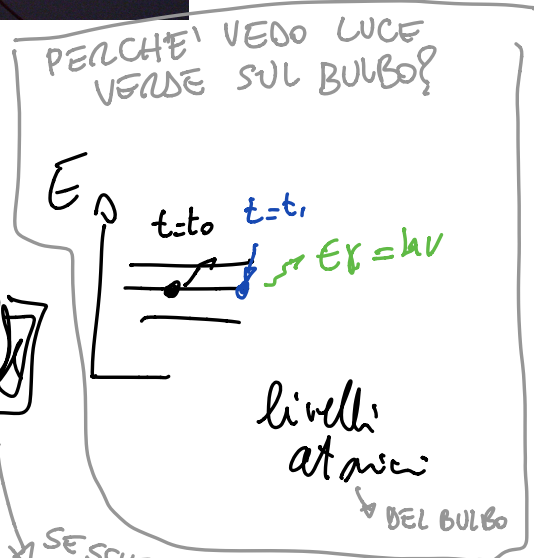 PERCHE' VEDO LUCE
VERDE SUL BULBO?
E
t=t₀
t=t₁
Eγ = hν
livelli
atomici
DEL BULBO
SE